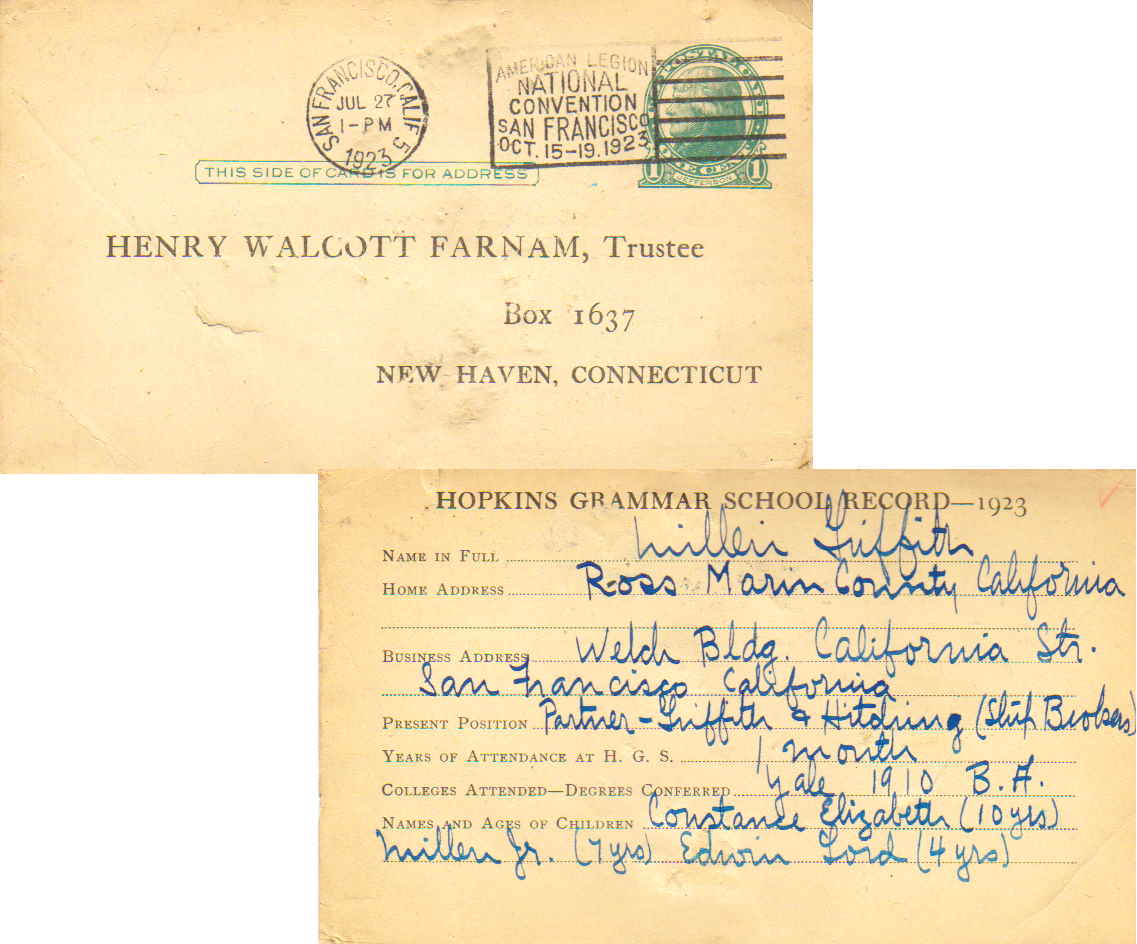 SAN FRANCISCO, CALIF. 5
JUL 27
1-PM
1923
AMERICAN LEGION
NATIONAL
CONVENTION
SAN FRANCISCO
OCT. 15-19. 1923
JEFFERSON
1 1
THIS SIDE OF CARD IS FOR ADDRESS
HENRY WALCOTT FARNAM, Trustee
Box 1637
NEW HAVEN, CONNECTICUT
HOPKINS GRAMMAR SCHOOL RECORD—1923
NAME IN FULL Millen Griffith
HOME ADDRESS Ross Marin County California
BUSINESS ADDRESS Welch Bldg. California Str.
San Francisco California
PRESENT POSITION Partner-Griffith & Hitching (Ship Brokers)
YEARS OF ATTENDANCE AT H. G. S. 1 month
COLLEGES ATTENDED—DEGREES CONFERRED Yale 1910 B.A.
NAMES AND AGES OF CHILDREN Constance Elizabeth (10 yrs)
Millen Jr. (7 yrs) Edwin Lord (4 yrs)